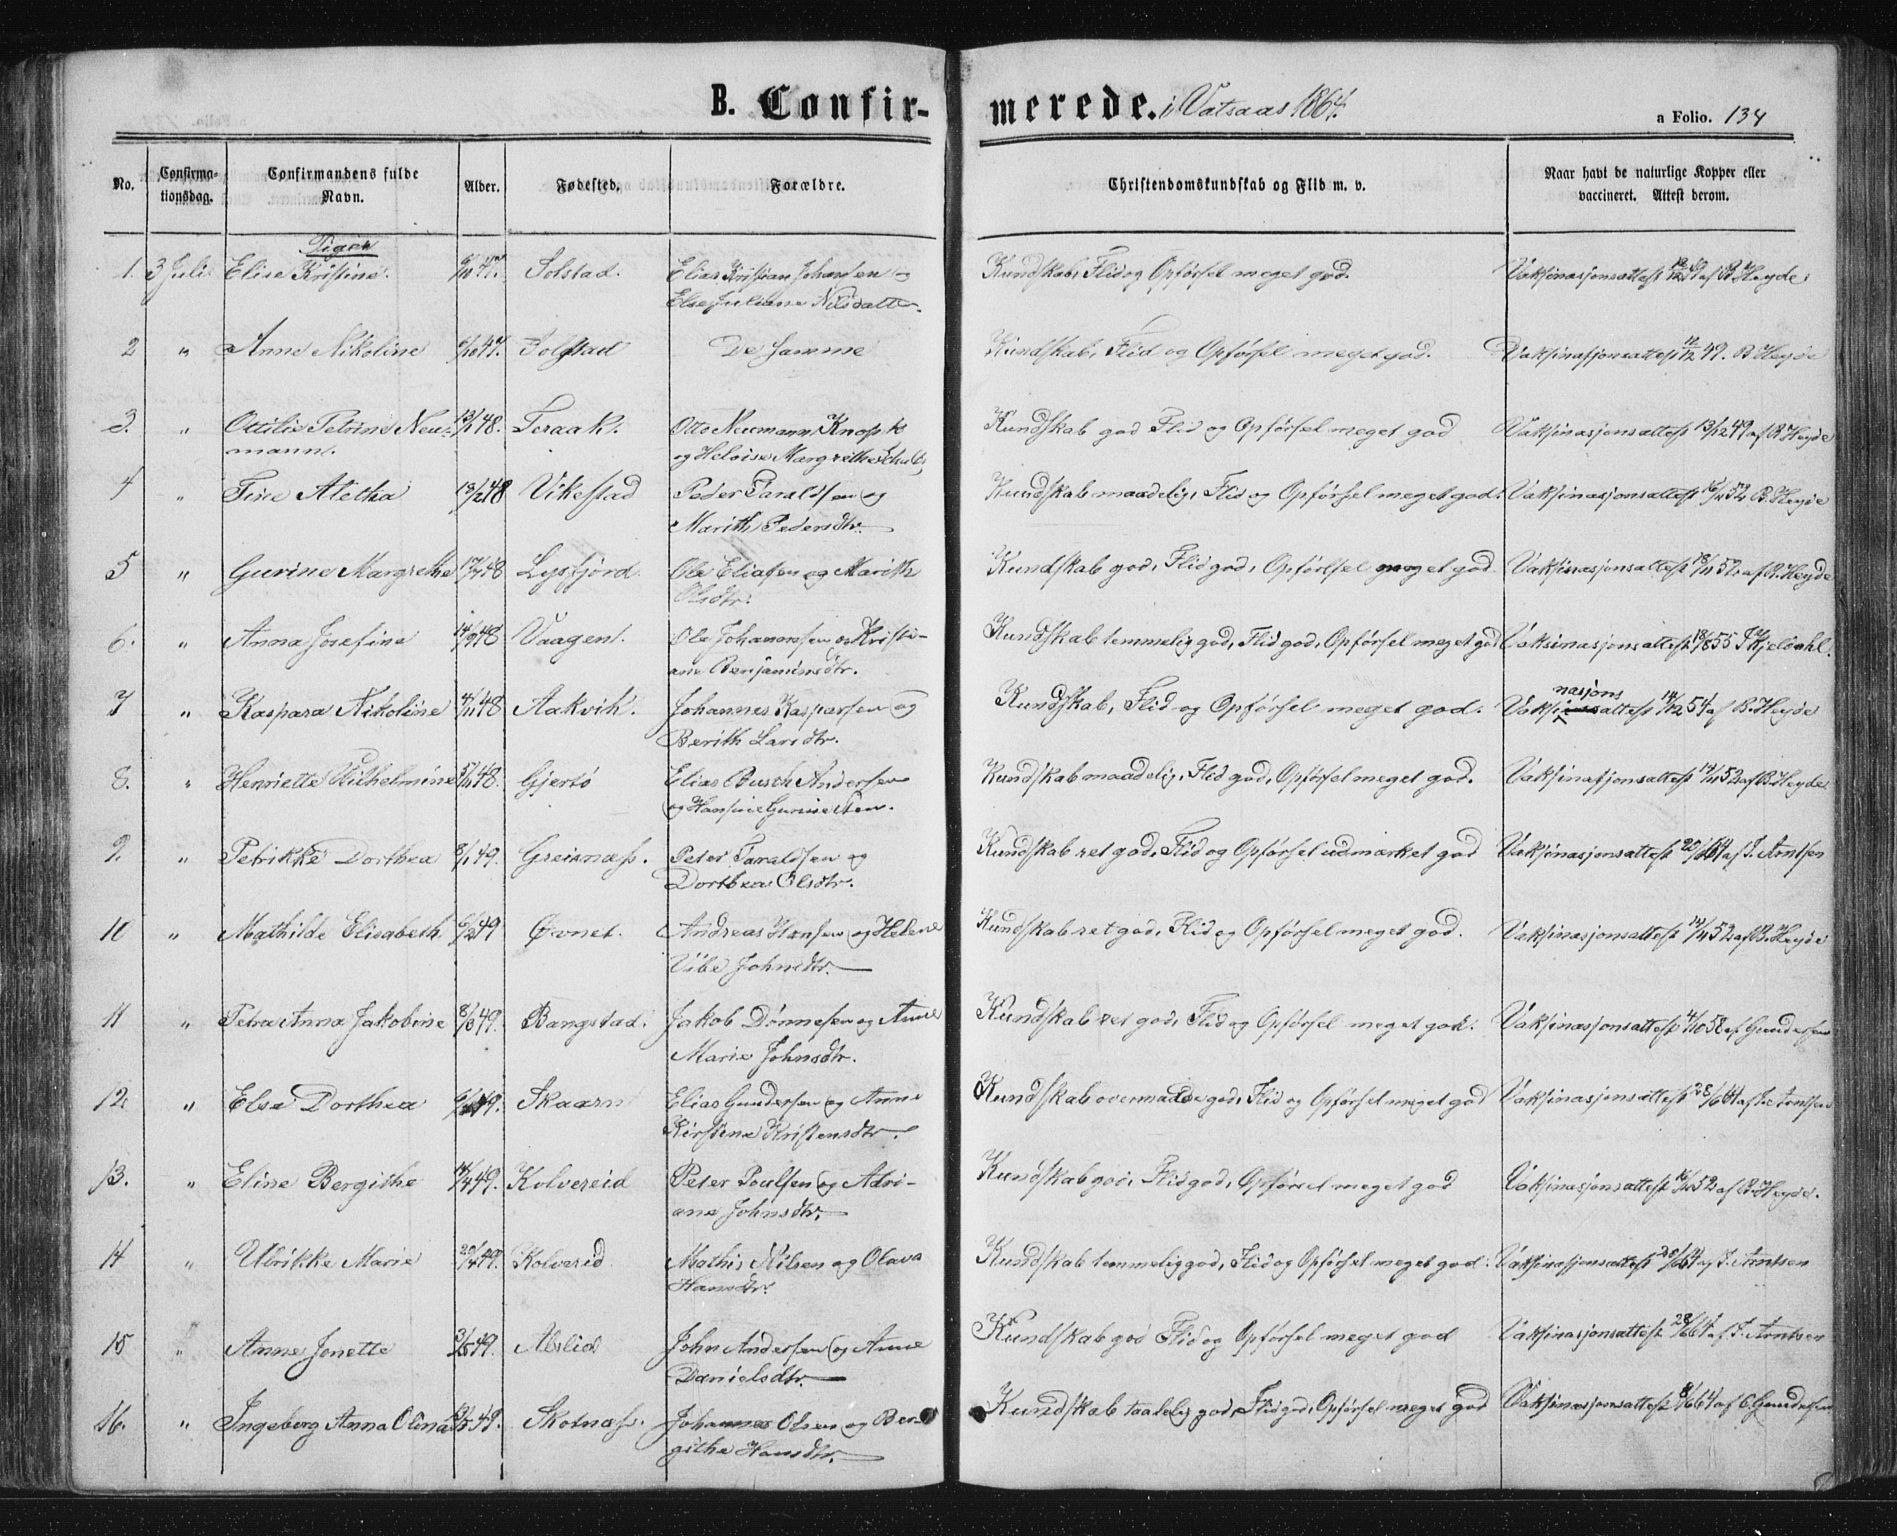 B. Confir-
merede. i Vatsaas 1864.
a Folio. 134
No.
Confirma-
tionsdag.
Confirmandens fulde
Navn.
Alder.
Fødested.
Forældre.
Christendomskundskab og Flid m. v.
Naar havt de naturlige Kopper eller
vaccineret. Attest derom.
Piger
1. 3 Juli Elise Kristine 47. Solstad. Elias Kristian Johansen og Kundskab, Flid og Opførsel meget god. Vaksinasjonsattest 12/12 49 af B. Heyde.
Else Juliane Nilsdatter.
2 " Anne Nikoline 47. Solstad De samme Kundskab, Flid og Opførsel meget god. Vaksinasjonsattest 12/12 49. B. Heyde
3. " Ottilie Petrine Neu- 13/1 48. Teraak. Otto Neumann Knoph Kundskab god Flid og Opførsel meget god Vaksinasjonsattest 13/12 49 af B. Heyde
mann. og Heloise Margrethe
4 " Tine Aletha 13/2 48 Vikestad Peder Taraldsen og Kundskab maadelig, Flid og Opførsel meget god. Vaksinasjonsattest 52 B. Heyde
Marith Pedersdtr.
5 " Gurine Margrethe 48 Lysfjord Ole Eliasen og Marith Kundskab god, Flid god, Opførlsel meget god. Vaksinasjonsattest 18/11 52 af B. Heyde
Olsdtr.
6. " Anna Josefine 14/9 48 Vaagen. Ole Johannessen og Kristi- Kundskab temmelig god, Flid god, Opførsel meget god Vaksinasjonsattest 18/8 55 Kjeldahl.
ane Benjaminsdtr.
7 " Kaspara Nikoline 4/11 48 Aakvik. Johannes Kaspersen og Kundskab, Flid og Opførsel meget god. Vaksinasjonsattest 14/12 54 af B. Heyde
Berith Larsdtr.
8. " Henriette Wilhelmine 48. Gjersø Elias Busch Andersen Kundskab maadelig, Flid god, Opførsel meget god. Vaksinasjonsattest 52 af B. Heyde
og Hansine Gurine
9. " Petrikke Dorthea 8/1 49. Greisnæss. Peter Taraldsen og Kundskab ret god, Flid og Opførsel udmærket god Vaksinasjonsattest 20/6 64 af J. Arntsen
Dorthea Olsdtr.
10 " Mathilde Elisabeth 6/2 49 Øvnet. Andreas Hansen og Helene Kundskab ret god, Flid og Opførsel meget god. Vaksinasjonsattest 52 af B. Heyde
Vibe Johnsdtr.
11 " Petra Anna Jakobine 8/3 49. Bangstad. Jakob Dønnesen og Anne Kundskab ret god, Flid og Opførsel meget god. Vaksinasjonsattest 4/10 58 af Gundersen
Marie Johnsdtr.
12. " Else Dorthea 49. Skaarn Elias Gundersen og Anne Kundskab overmaade god, Flid og Opførsel meget god Vaksinasjonsattest 28/6 64 af J. Arntsen
Kirstine Kristensdtr.
13. " Eline Bergithe 14/4 49. Kolvereid Peter Poulsen og Adri- Kundskab god, Flid god, Opførsel meget god Vaksinasjonsattest 52 af B. Heyde.
ane Johnsdtr.
14 " Ulrikke Marie 20/4 49. Kolverid Mathis Nilsen og Olava Kundskab temmelig god, Flid og Opførsel meget god. Vaksinasjonsattest 20/6 64 af J. Arntsen
Hansdtr.
15 " Anne Jonette 3/5 49. Abslid John Andersen og Anne Kundskab god Flid og Opførsel meget god Vaksinasjonsattest 28/6 64 af J. Arntsen
Danielsdtr.
16. " Ingeborg Anna Olina 49. Skotnæss. Johannes Olsen og Ber- Kundskab taalelig god, Flid god, Opførsel meget god Vaksinasjonsattest 8/6 64 af O. Gundersen
githe Hansdtr.